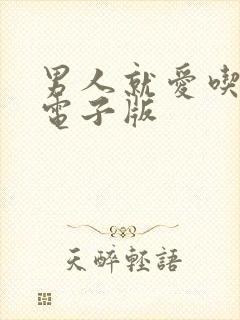 男人就愛喫
電子版
天醉輕語